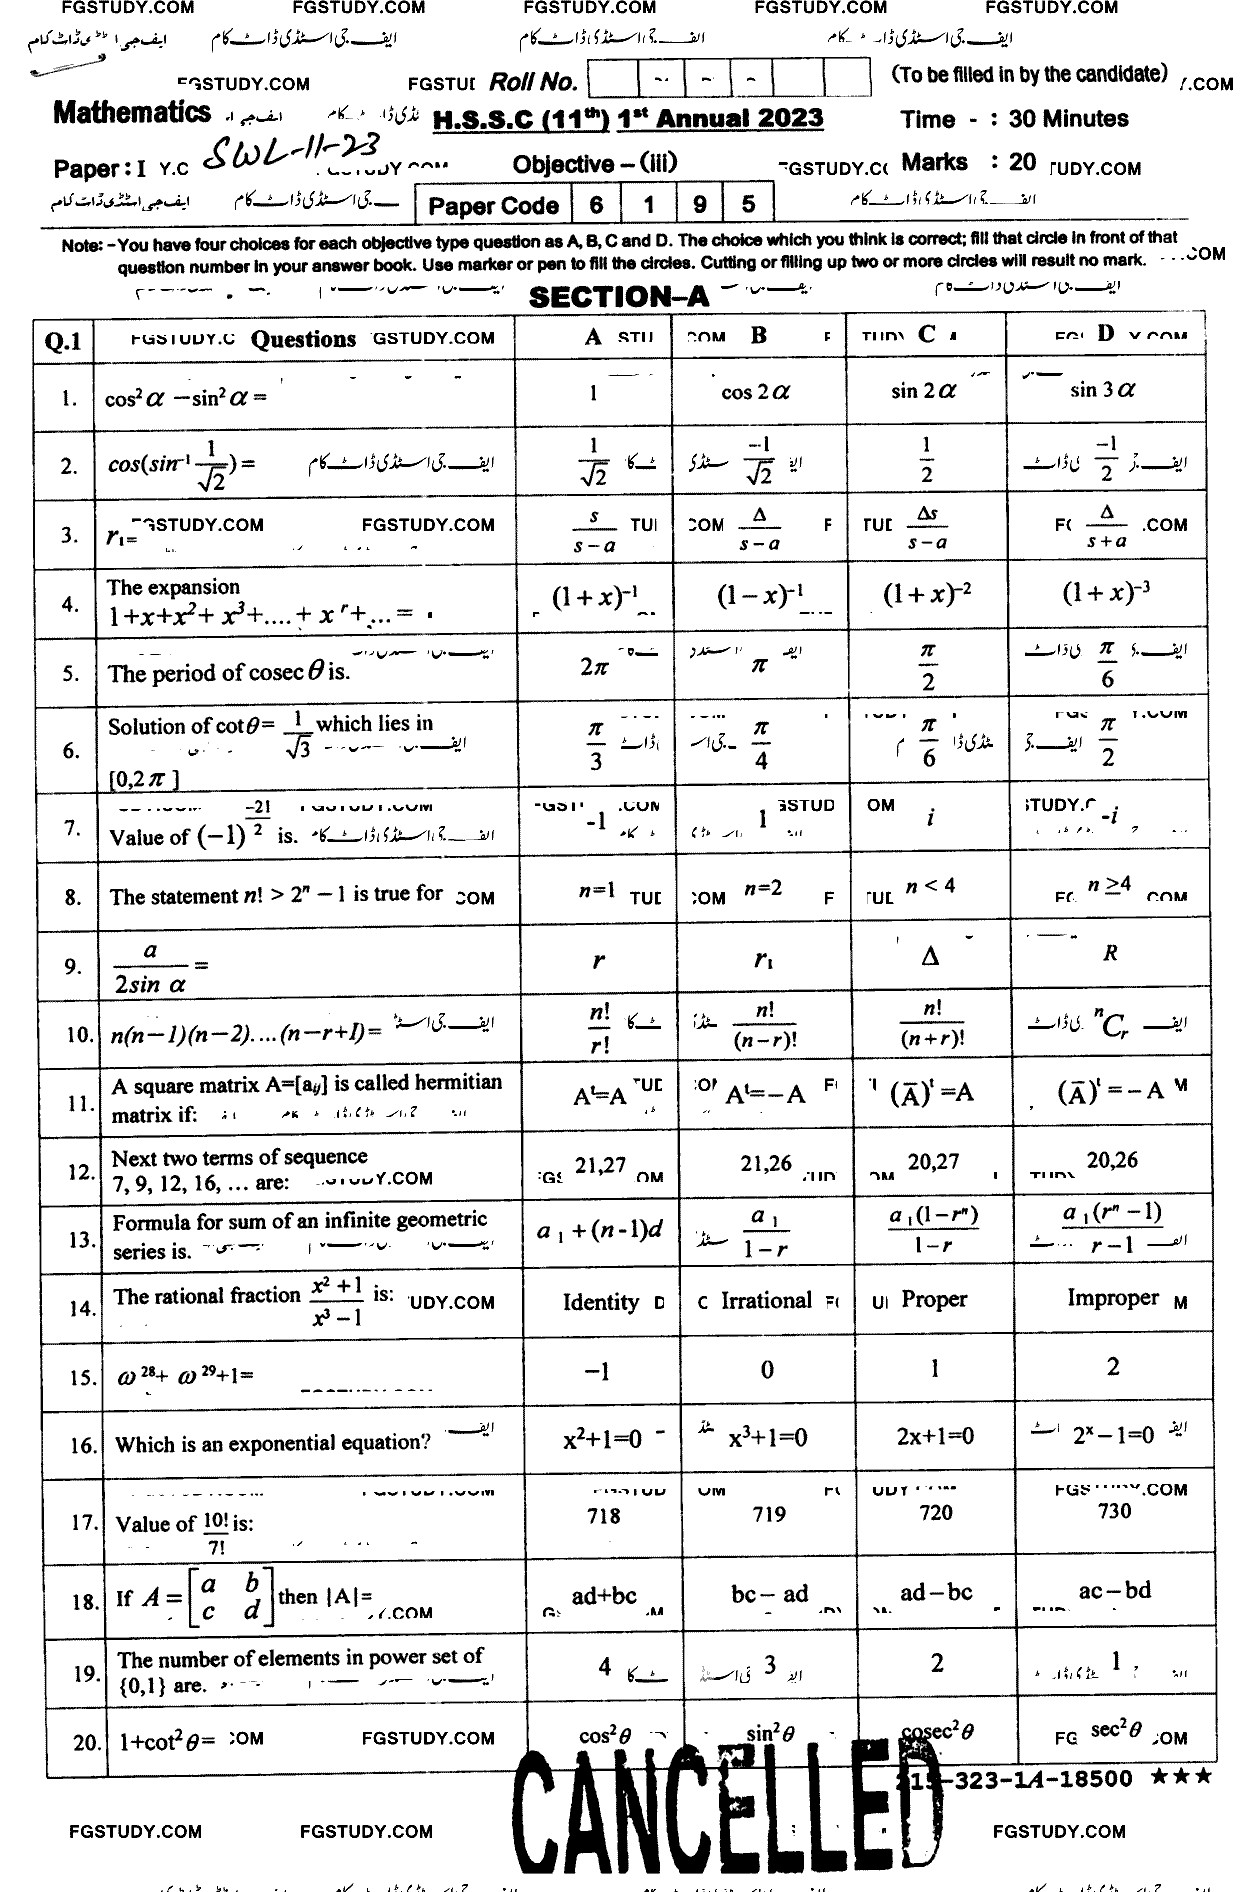 FGSTUDY.COM FGSTUDY.COM FGSTUDY.COM FGSTUDY.COM FGSTUDY.COM
ایف جی اسٹڈی ڈاٹ کام ایف جی اسٹڈی ڈاٹ کام
FGSTUDY.COM Roll No. (To be filled in by the candidate)
Mathematics H.S.S.C (11th) 1st Annual 2023 Time - : 30 Minutes
SWL-11-23
Paper : I Objective – (iii) Marks : 20
Paper Code 6 1 9 5
Note: – You have four choices for each objective type question as A, B, C and D. The choice which you think is correct; fill that circle in front of that
question number in your answer book. Use marker or pen to fill the circles. Cutting or filling up two or more circles will result no mark.
SECTION–A
Q.1 Questions A B C D
1. cos² α – sin² α = 1 cos 2α sin 2α sin 3α
2. cos(sin⁻¹ 1/√2) = 1/√2 -1/√2 1/2 -1/2
3. r₁ = s/(s – a) Δ/(s – a) Δs/(s – a) Δ/(s + a)
FGSTUDY.COM
4. The expansion
1+x+x²+ x³+....+ x ʳ+... = (1+x)⁻¹ (1–x)⁻¹ (1+x)⁻² (1+x)⁻³
5. The period of cosec θ is. 2π π π/2 π/6
6. Solution of cot θ = 1/√3 which lies in
[0,2π ] π/3 π/4 π/6 π/2
7. Value of (–1)^(-21/2) is. -1 1 i -i
8. The statement n! > 2ⁿ – 1 is true for n=1 n=2 n < 4 n ≥4
9. a/(2sin α) = r r₁ Δ R
10. n(n–1)(n–2)....(n–r+1)= n!/r! n!/(n–r)! n!/(n+r)! ⁿCᵣ
11. A square matrix A=[aᵢⱼ] is called hermitian
matrix if: Aᵗ=A Aᵗ=–A (A̅)ᵗ=A (A̅)ᵗ=–A
12. Next two terms of sequence
7, 9, 12, 16, … are: 21,27 21,26 20,27 20,26
13. Formula for sum of an infinite geometric
series is. a₁+(n-1)d a₁/(1–r) a₁(1–rⁿ)/(1–r) a₁(rⁿ –1)/(r–1)
14. The rational fraction (x² +1)/(x³ –1) is: Identity Irrational Proper Improper
15. ω²⁸+ ω²⁹+1= –1 0 1 2
16. Which is an exponential equation? x²+1=0 x³+1=0 2x+1=0 2ˣ–1=0
17. Value of 10!/7! is: 718 719 720 730
18. If A = [a b; c d] then |A|= ad+bc bc – ad ad – bc ac – bd
19. The number of elements in power set of
{0,1} are. 4 3 2 1
20. 1+cot² θ = cos² θ sin² θ cosec² θ sec² θ
FGSTUDY.COM
-323-1A-18500 ★★★
CANCELLED
FGSTUDY.COM FGSTUDY.COM FGSTUDY.COM